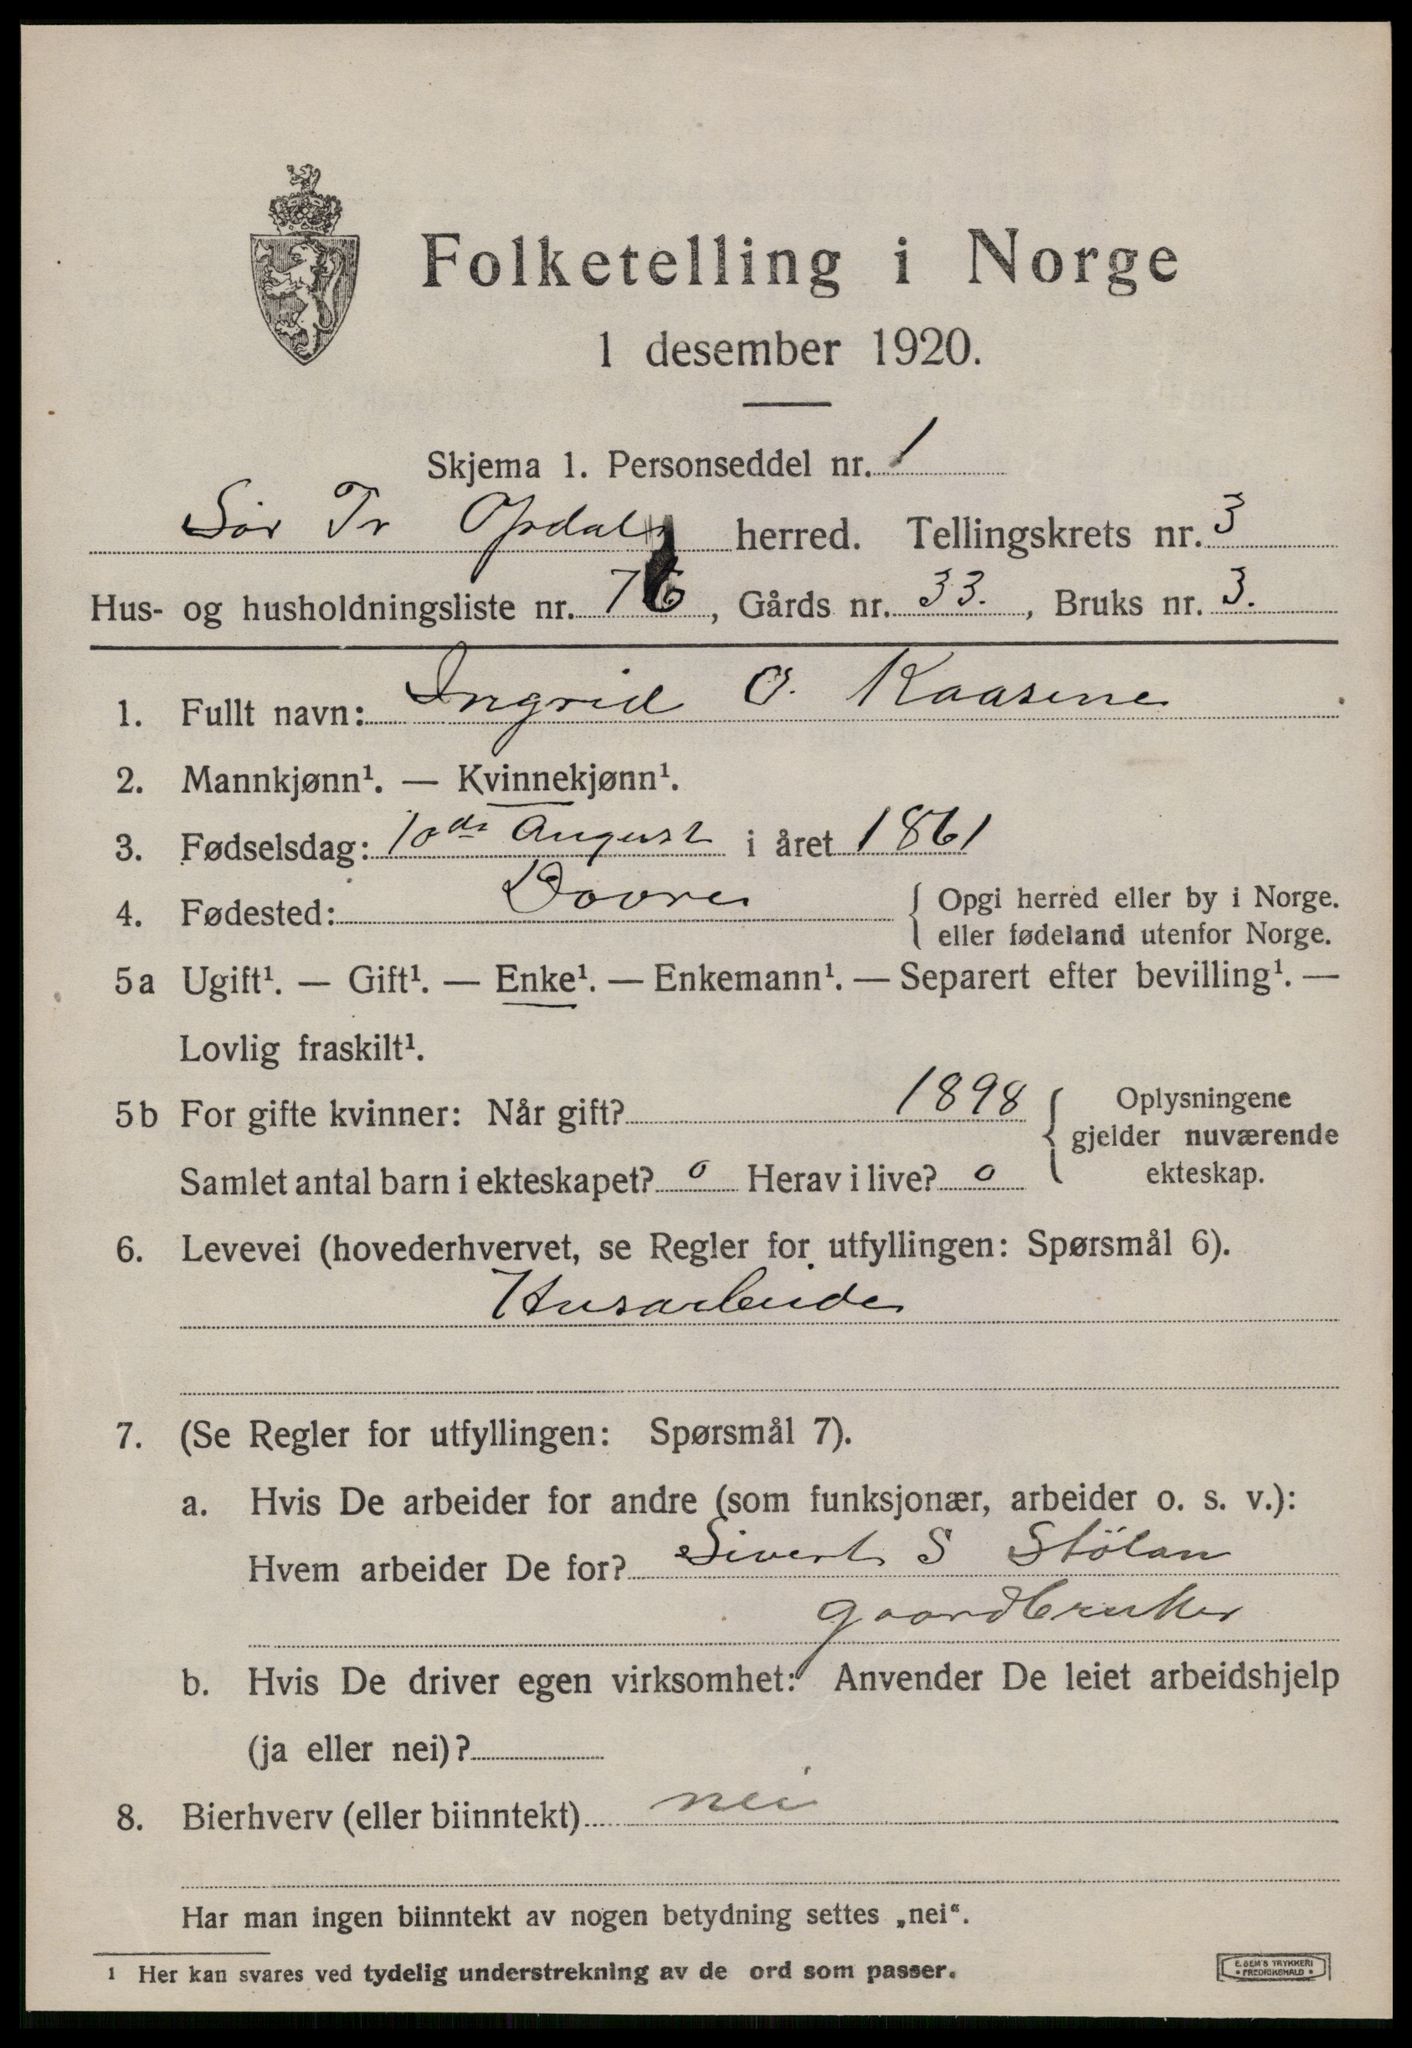 Folketelling i Norge
1 desember 1920.
Skjema 1. Personseddel nr. 1
Sør Tr Opdal herred. Tellingskrets nr. 3
Hus- og husholdningsliste nr. 76, Gårds nr. 33., Bruks nr. 3.
1. Fullt navn: Ingrid O. Kaasene
2. Mannkjønn¹. — Kvinnekjønn¹.
3. Fødselsdag: 10de August i året 1861
4. Fødested: Dovre { Opgi herred eller by i Norge.
eller fødeland utenfor Norge.
5a Ugift¹. — Gift¹. — Enke¹. — Enkemann¹. — Separert efter bevilling¹. —
Lovlig fraskilt¹.
5b For gifte kvinner: Når gift? 1898 { Oplysningene
gjelder nuværende
Samlet antal barn i ekteskapet? 0 Herav i live? 0 ekteskap.
6. Levevei (hovederhvervet, se Regler for utfyllingen: Spørsmål 6).
Husarbeide
7. (Se Regler for utfyllingen: Spørsmål 7).
a. Hvis De arbeider for andre (som funksjonær, arbeider o. s. v.):
Hvem arbeider De for? Sivert S Stölan
gaardbruker
b. Hvis De driver egen virksomhet: Anvender De leiet arbeidshjelp
(ja eller nei)?
8. Bierhverv (eller biinntekt) nei
Har man ingen biinntekt av nogen betydning settes „nei“.
1 Her kan svares ved tydelig understrekning av de ord som passer.
E. SEM'S TRYKKERI
• FREDRIKSHALD •